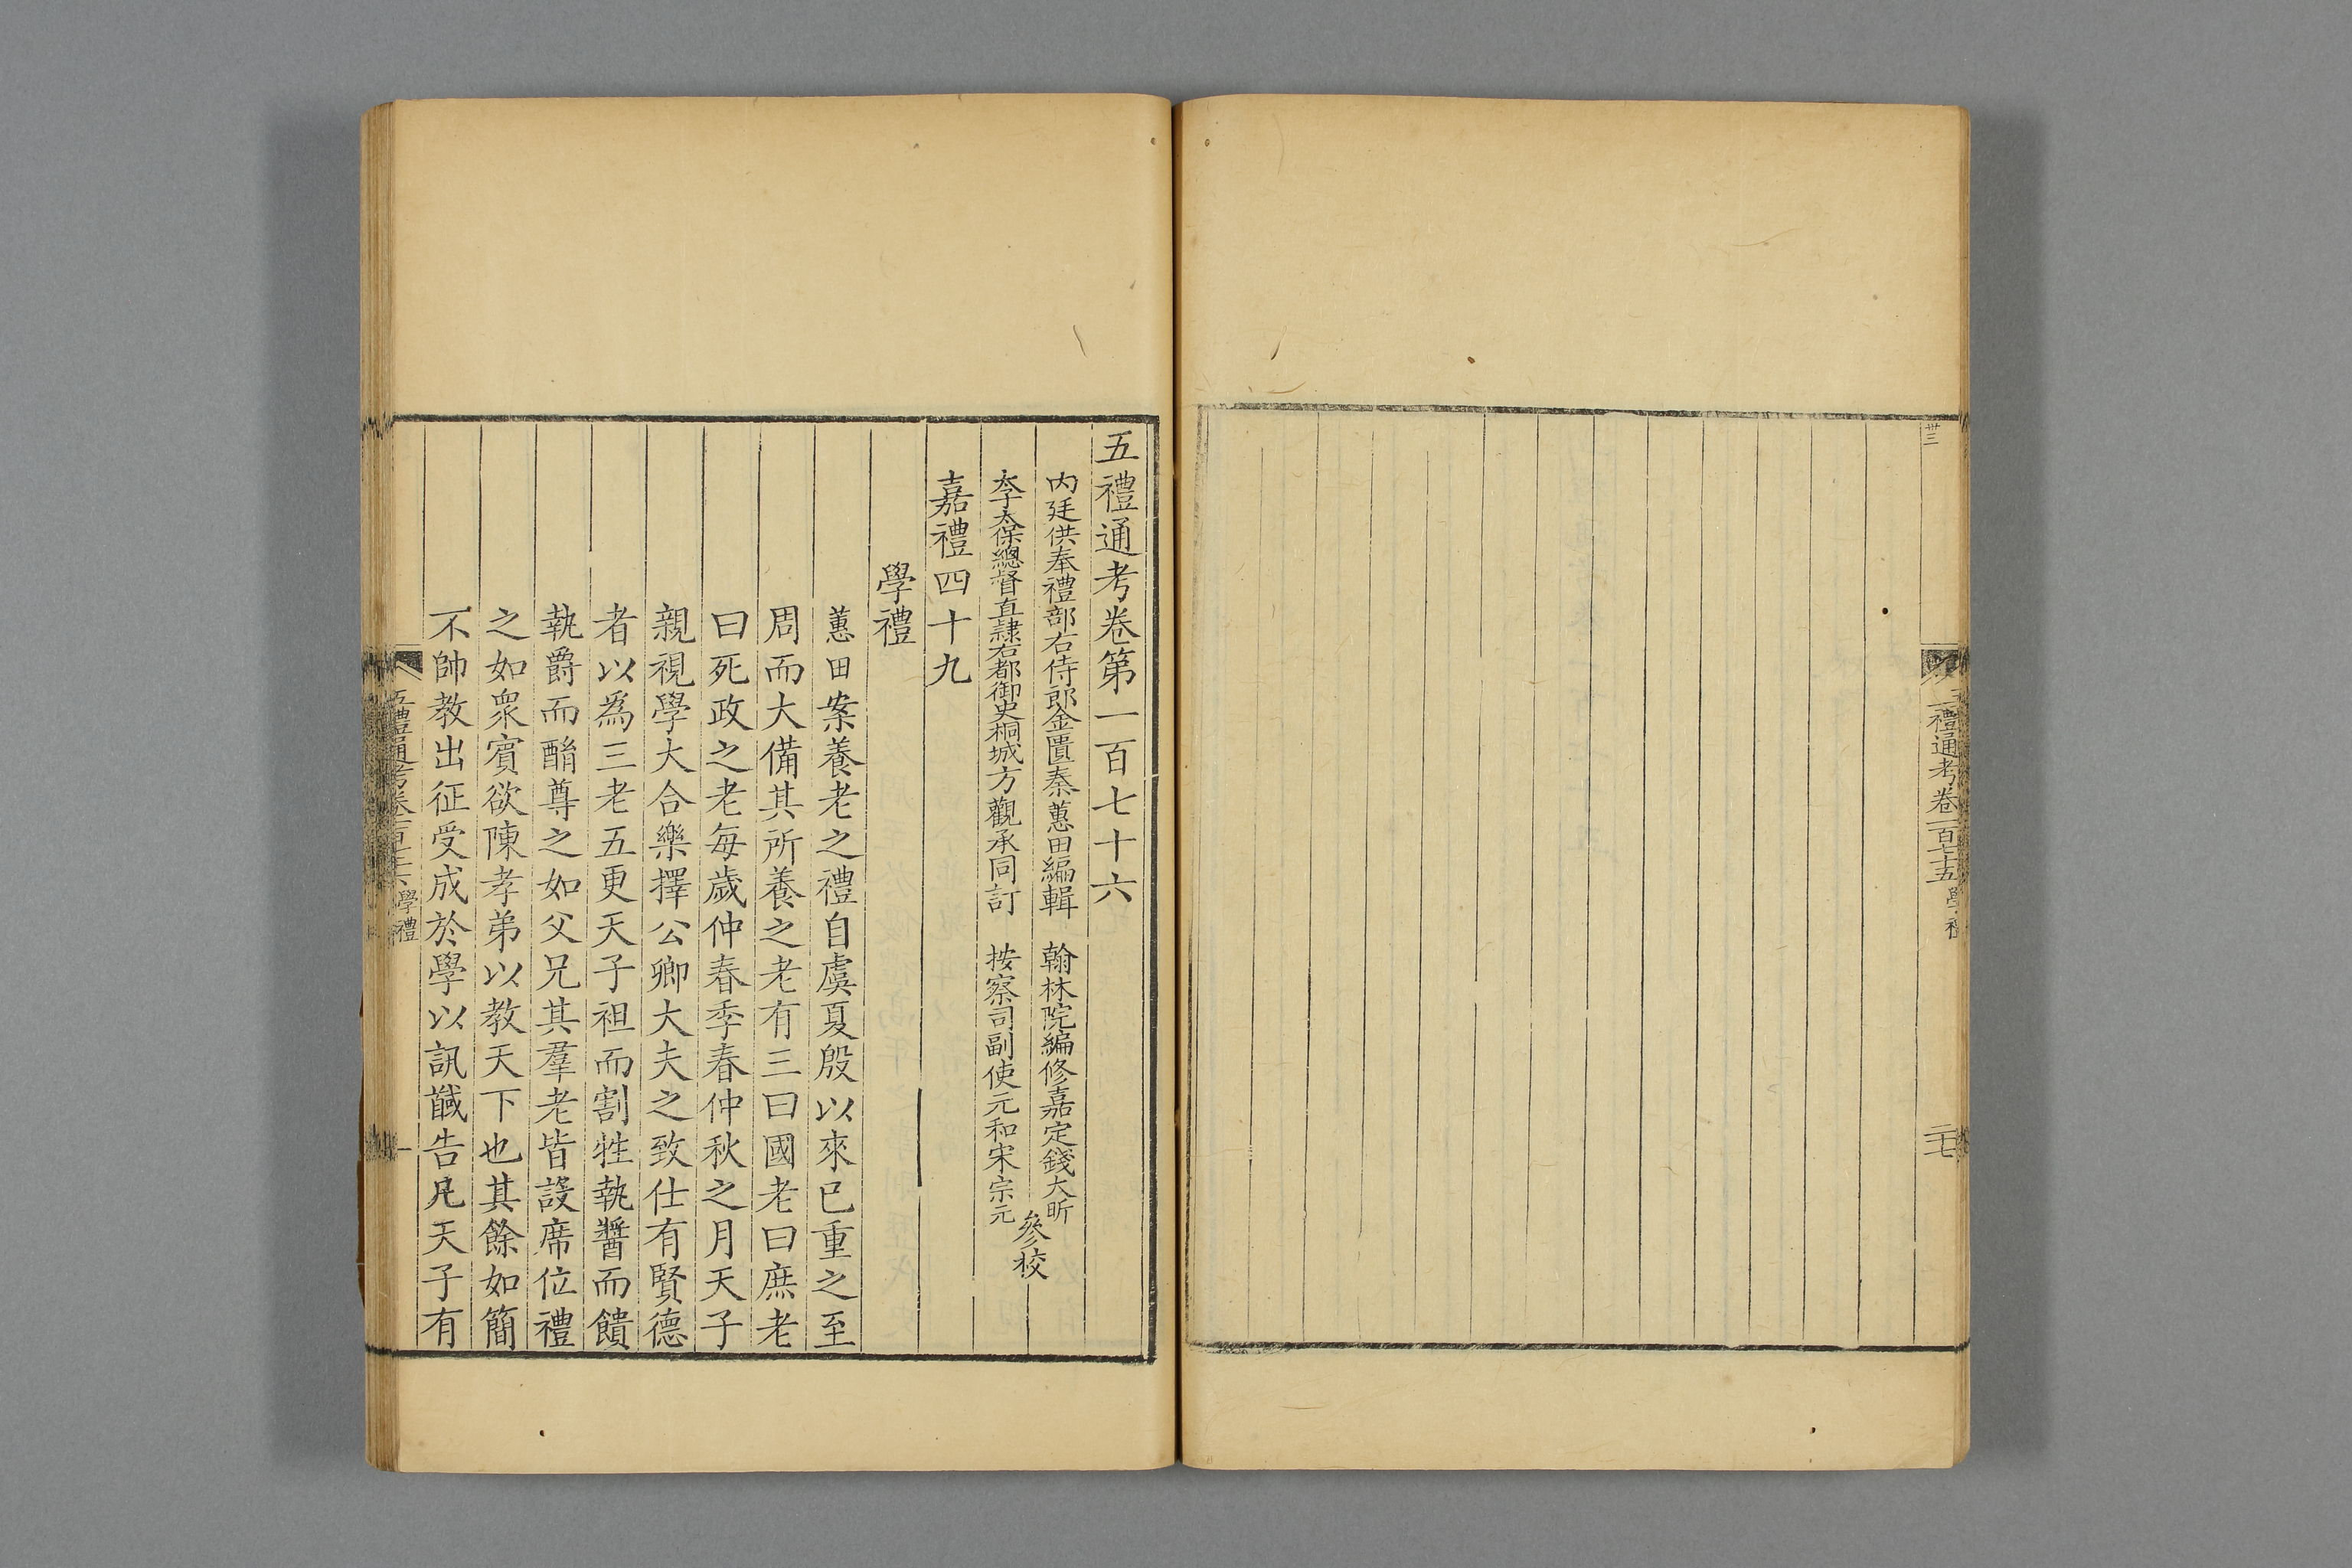 卅三
禮通考卷一百七十五
學禮
二十七
五禮通考卷第一百七十六
內廷供奉禮部右侍郎金匱秦蕙田編輯 翰林院編修嘉定錢大昕
太子太保總督直隸右都御史桐城方觀承同訂 按察司副使元和宋宗元
參校
嘉禮四十九
學禮
蕙田案養老之禮自虞夏殷以來已重之至
周而大備其所養之老有三曰國老曰庶老
曰死政之老每歲仲春季春仲秋之月天子
親視學大合樂擇公卿大夫之致仕有賢德
者以為三老五更天子袒而割牲執醬而饋
執爵而酳尊之如父兄其羣老皆設席位禮
之如衆賓欲陳孝弟以教天下也其餘如簡
不帥教出征受成於學以訊馘告凡天子有
五禮通考卷一百七十六
學禮
一